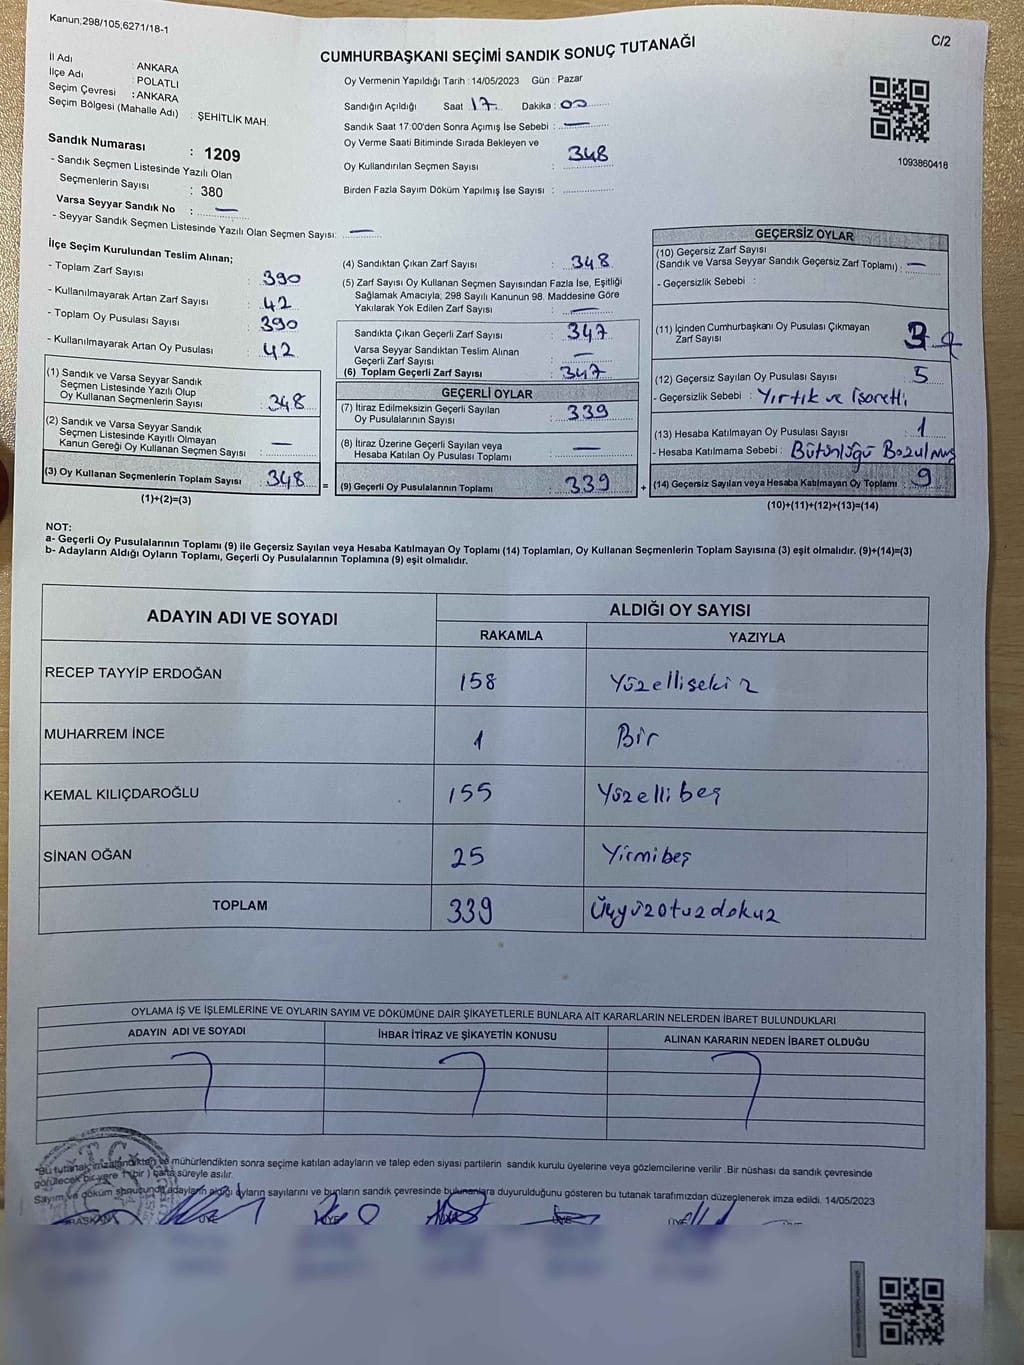 Kanun;298/105,6271/18-1
C/2
CUMHURBAŞKANI SEÇİMİ SANDIK SONUÇ TUTANAĞI
İl Adı : ANKARA
İlçe Adı : POLATLI
Seçim Çevresi : ANKARA
Seçim Bölgesi (Mahalle Adı) : ŞEHİTLİK MAH.
Sandık Numarası : 1209
- Sandık Seçmen Listesinde Yazılı Olan
Seçmenlerin Sayısı : 380
Varsa Seyyar Sandık No : —
- Seyyar Sandık Seçmen Listesinde Yazılı Olan Seçmen Sayısı: —
Oy Vermenin Yapıldığı Tarih : 14/05/2023 Gün : Pazar
Sandığın Açıldığı Saat 17 Dakika : 00
Sandık Saat 17:00'den Sonra Açımış İse Sebebi : —
Oy Verme Saati Bitiminde Sırada Bekleyen ve
Oy Kullandırılan Seçmen Sayısı : 348
Birden Fazla Sayım Döküm Yapılmış İse Sayısı :
1093860418
İlçe Seçim Kurulundan Teslim Alınan;
- Toplam Zarf Sayısı : 390
- Kullanılmayarak Artan Zarf Sayısı : 42
- Toplam Oy Pusulası Sayısı : 390
- Kullanılmayarak Artan Oy Pusulası : 42
(1) Sandık ve Varsa Seyyar Sandık
Seçmen Listesinde Yazılı Olup
Oy Kullanan Seçmenlerin Sayısı : 348
(2) Sandık ve Varsa Seyyar Sandık
Seçmen Listesinde Kayıtlı Olmayan
Kanun Gereği Oy Kullanan Seçmen Sayısı : —
(3) Oy Kullanan Seçmenlerin Toplam Sayısı : 348 =
(1)+(2)=(3)
(4) Sandıktan Çıkan Zarf Sayısı : 348
(5) Zarf Sayısı Oy Kullanan Seçmen Sayısından Fazla İse, Eşitliği
Sağlamak Amacıyla; 298 Sayılı Kanunun 98. Maddesine Göre
Yakılarak Yok Edilen Zarf Sayısı : —
Sandıkta Çıkan Geçerli Zarf Sayısı : 347
Varsa Seyyar Sandıktan Teslim Alınan
Geçerli Zarf Sayısı : —
(6) Toplam Geçerli Zarf Sayısı : 347
GEÇERLİ OYLAR
(7) İtiraz Edilmeksizin Geçerli Sayılan
Oy Pusulalarının Sayısı : 339
(8) İtiraz Üzerine Geçerli Sayılan veya
Hesaba Katılan Oy Pusulası Toplamı : —
(9) Geçerli Oy Pusulalarının Toplamı : 339 +
GEÇERSİZ OYLAR
(10) Geçersiz Zarf Sayısı
(Sandık ve Varsa Seyyar Sandık Geçersiz Zarf Toplamı) : —
- Geçersizlik Sebebi :
(11) İçinden Cumhurbaşkanı Oy Pusulası Çıkmayan
Zarf Sayısı : 3
(12) Geçersiz Sayılan Oy Pusulası Sayısı : 5
- Geçersizlik Sebebi : Yırtık ve İşaretli
(13) Hesaba Katılmayan Oy Pusulası Sayısı : 1
- Hesaba Katılmama Sebebi : Bütünlüğü Bozulmuş
(14) Geçersiz Sayılan veya Hesaba Katılmayan Oy Toplamı : 9
(10)+(11)+(12)+(13)=(14)
NOT:
a- Geçerli Oy Pusulalarının Toplamı (9) ile Geçersiz Sayılan veya Hesaba Katılmayan Oy Toplamı (14) Toplamları, Oy Kullanan Seçmenlerin Toplam Sayısına (3) eşit olmalıdır. (9)+(14)=(3)
b- Adayların Aldığı Oyların Toplamı, Geçerli Oy Pusulalarının Toplamına (9) eşit olmalıdır.
ADAYIN ADI VE SOYADI ALDIĞI OY SAYISI
RAKAMLA YAZIYLA
RECEP TAYYİP ERDOĞAN 158 Yüzellisekiz
MUHARREM İNCE 1 Bir
KEMAL KILIÇDAROĞLU 155 Yüzellibeş
SİNAN OĞAN 25 Yirmibeş
TOPLAM 339 Üçyüzotuzdokuz
OYLAMA İŞ VE İŞLEMLERİNE VE OYLARIN SAYIM VE DÖKÜMÜNE DAİR ŞİKAYETLERLE BUNLARA AİT KARARLARIN NELERDEN İBARET BULUNDUKLARI
ADAYIN ADI VE SOYADI İHBAR İTİRAZ VE ŞİKAYETİN KONUSU ALINAN KARARIN NEDEN İBARET OLDUĞU
"Bu tutanak imzalandıktan ve mühürlendikten sonra seçime katılan adayların ve talep eden siyasi partilerin sandık kurulu üyelerine veya gözlemcilerine verilir. Bir nüshası da sandık çevresinde
görülecek bir yere 1 (bir) hafta süreyle asılır.
Sayım ve döküm sonucunda adayların aldığı oyların sayılarını ve bunların sandık çevresinde bulunanlara duyurulduğunu gösteren bu tutanak tarafımızdan düzenlenerek imza edildi. 14/05/2023
BAŞKAN ÜYE ÜYE ÜYE ÜYE